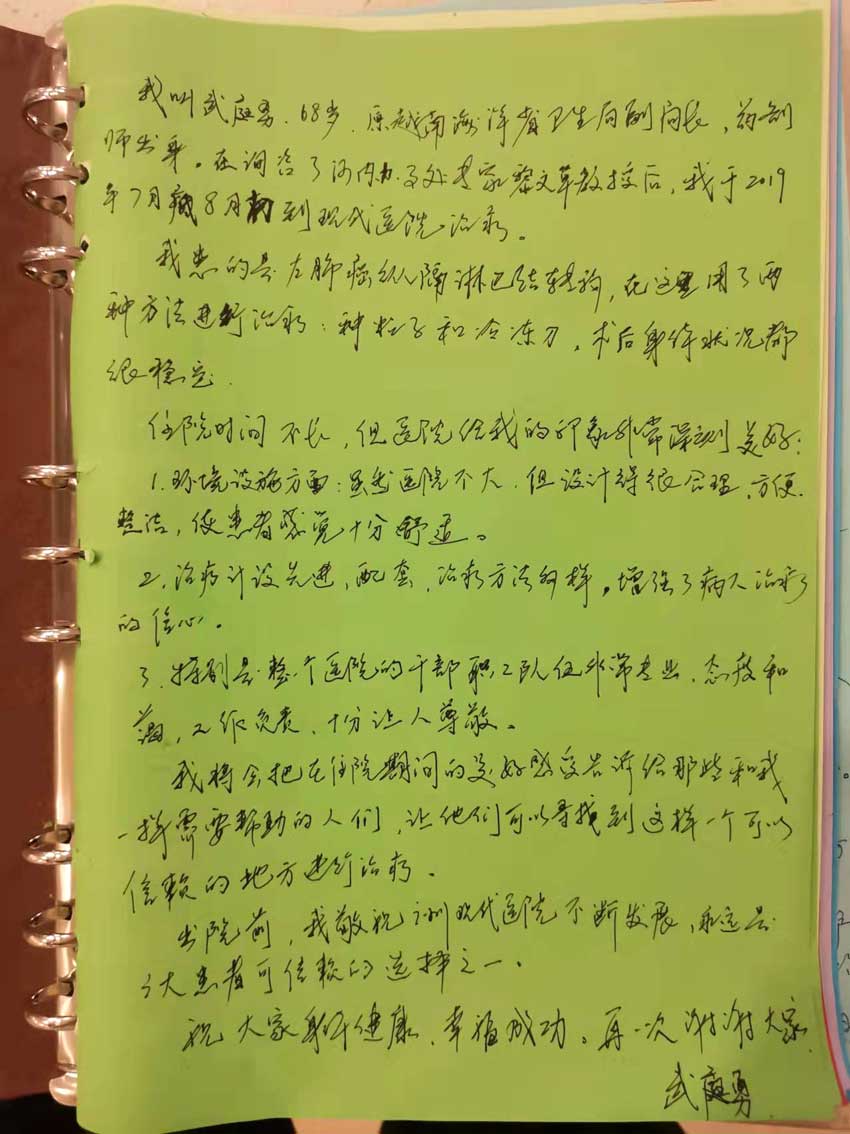 我叫武庭勇.68岁.原越南海洋省卫生局副局长,药剂
师出身。在询咨了河内办事处专家黎文草教授后,我于2019
年7月 8月 到现代医院治疗。
我患的是左肺癌纵隔淋巴结转移,在这里用了两
种方法进行治疗:种粒子和冷冻刀,术后身体状况都
很稳定.
住院时间不长,但医院给我的印象非常深刻美好:
1.环境设施方面:虽然医院不大.但设计得很合理、方便.
整洁,使患者感觉十分舒适。
2.治疗计设先进,配套,治疗方法多样。增强了病人治疗
的信心。
3.特别是整个医院的干部职工队伍非常专业.态度和
蔼,工作负责.十分让人尊敬。
我将会把在住院期间的美好感受告诉给那些和我
一样需要帮助的人们,让他们可以寻找到这样一个可以
信赖的地方进行治疗。
出院前,我敬祝 现代医院不断发展,永远是
广大患者可信赖的选择之一。
祝大家身体健康.幸福成功。再一次谢谢大家
武庭勇